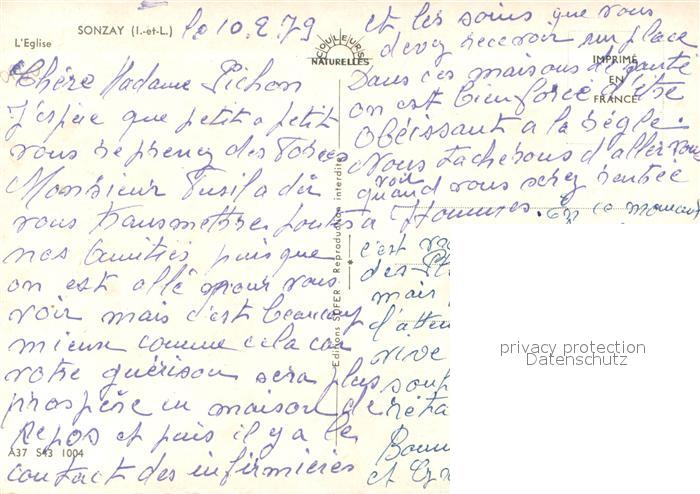 SONZAY (I.-et-L.)
L'Eglise
le 10.2.79
COULEURS
NATURELLES
IMPRIMÉ
EN
FRANCE
Chère Madame Pichon
J'espère que petit a petit
vous reprenez des forces
Monsieur a dû
vous transmettre toutes
nos Amitiés puisque
on est allé pour vous
voir mais c'est beaucoup
mieux comme cela car
votre guérison sera plus
prospère en maison de
Repos et puis il y a le
contact des infirmières
A37 S43 1004
Editions SOFER - Reproduction interdite
et les soins que vous
devez recevoir sur place
Dans ces maisons de santé
on est bien forcé d'être
obéissant a la règle.
Nous tacherons d'aller vous
voir
quand vous serez rentrée
a Hommes. En ce moment
c'est
des
mais
d'atten
vive
soup
réta
Bonn
et
privacy protection
Datenschutz